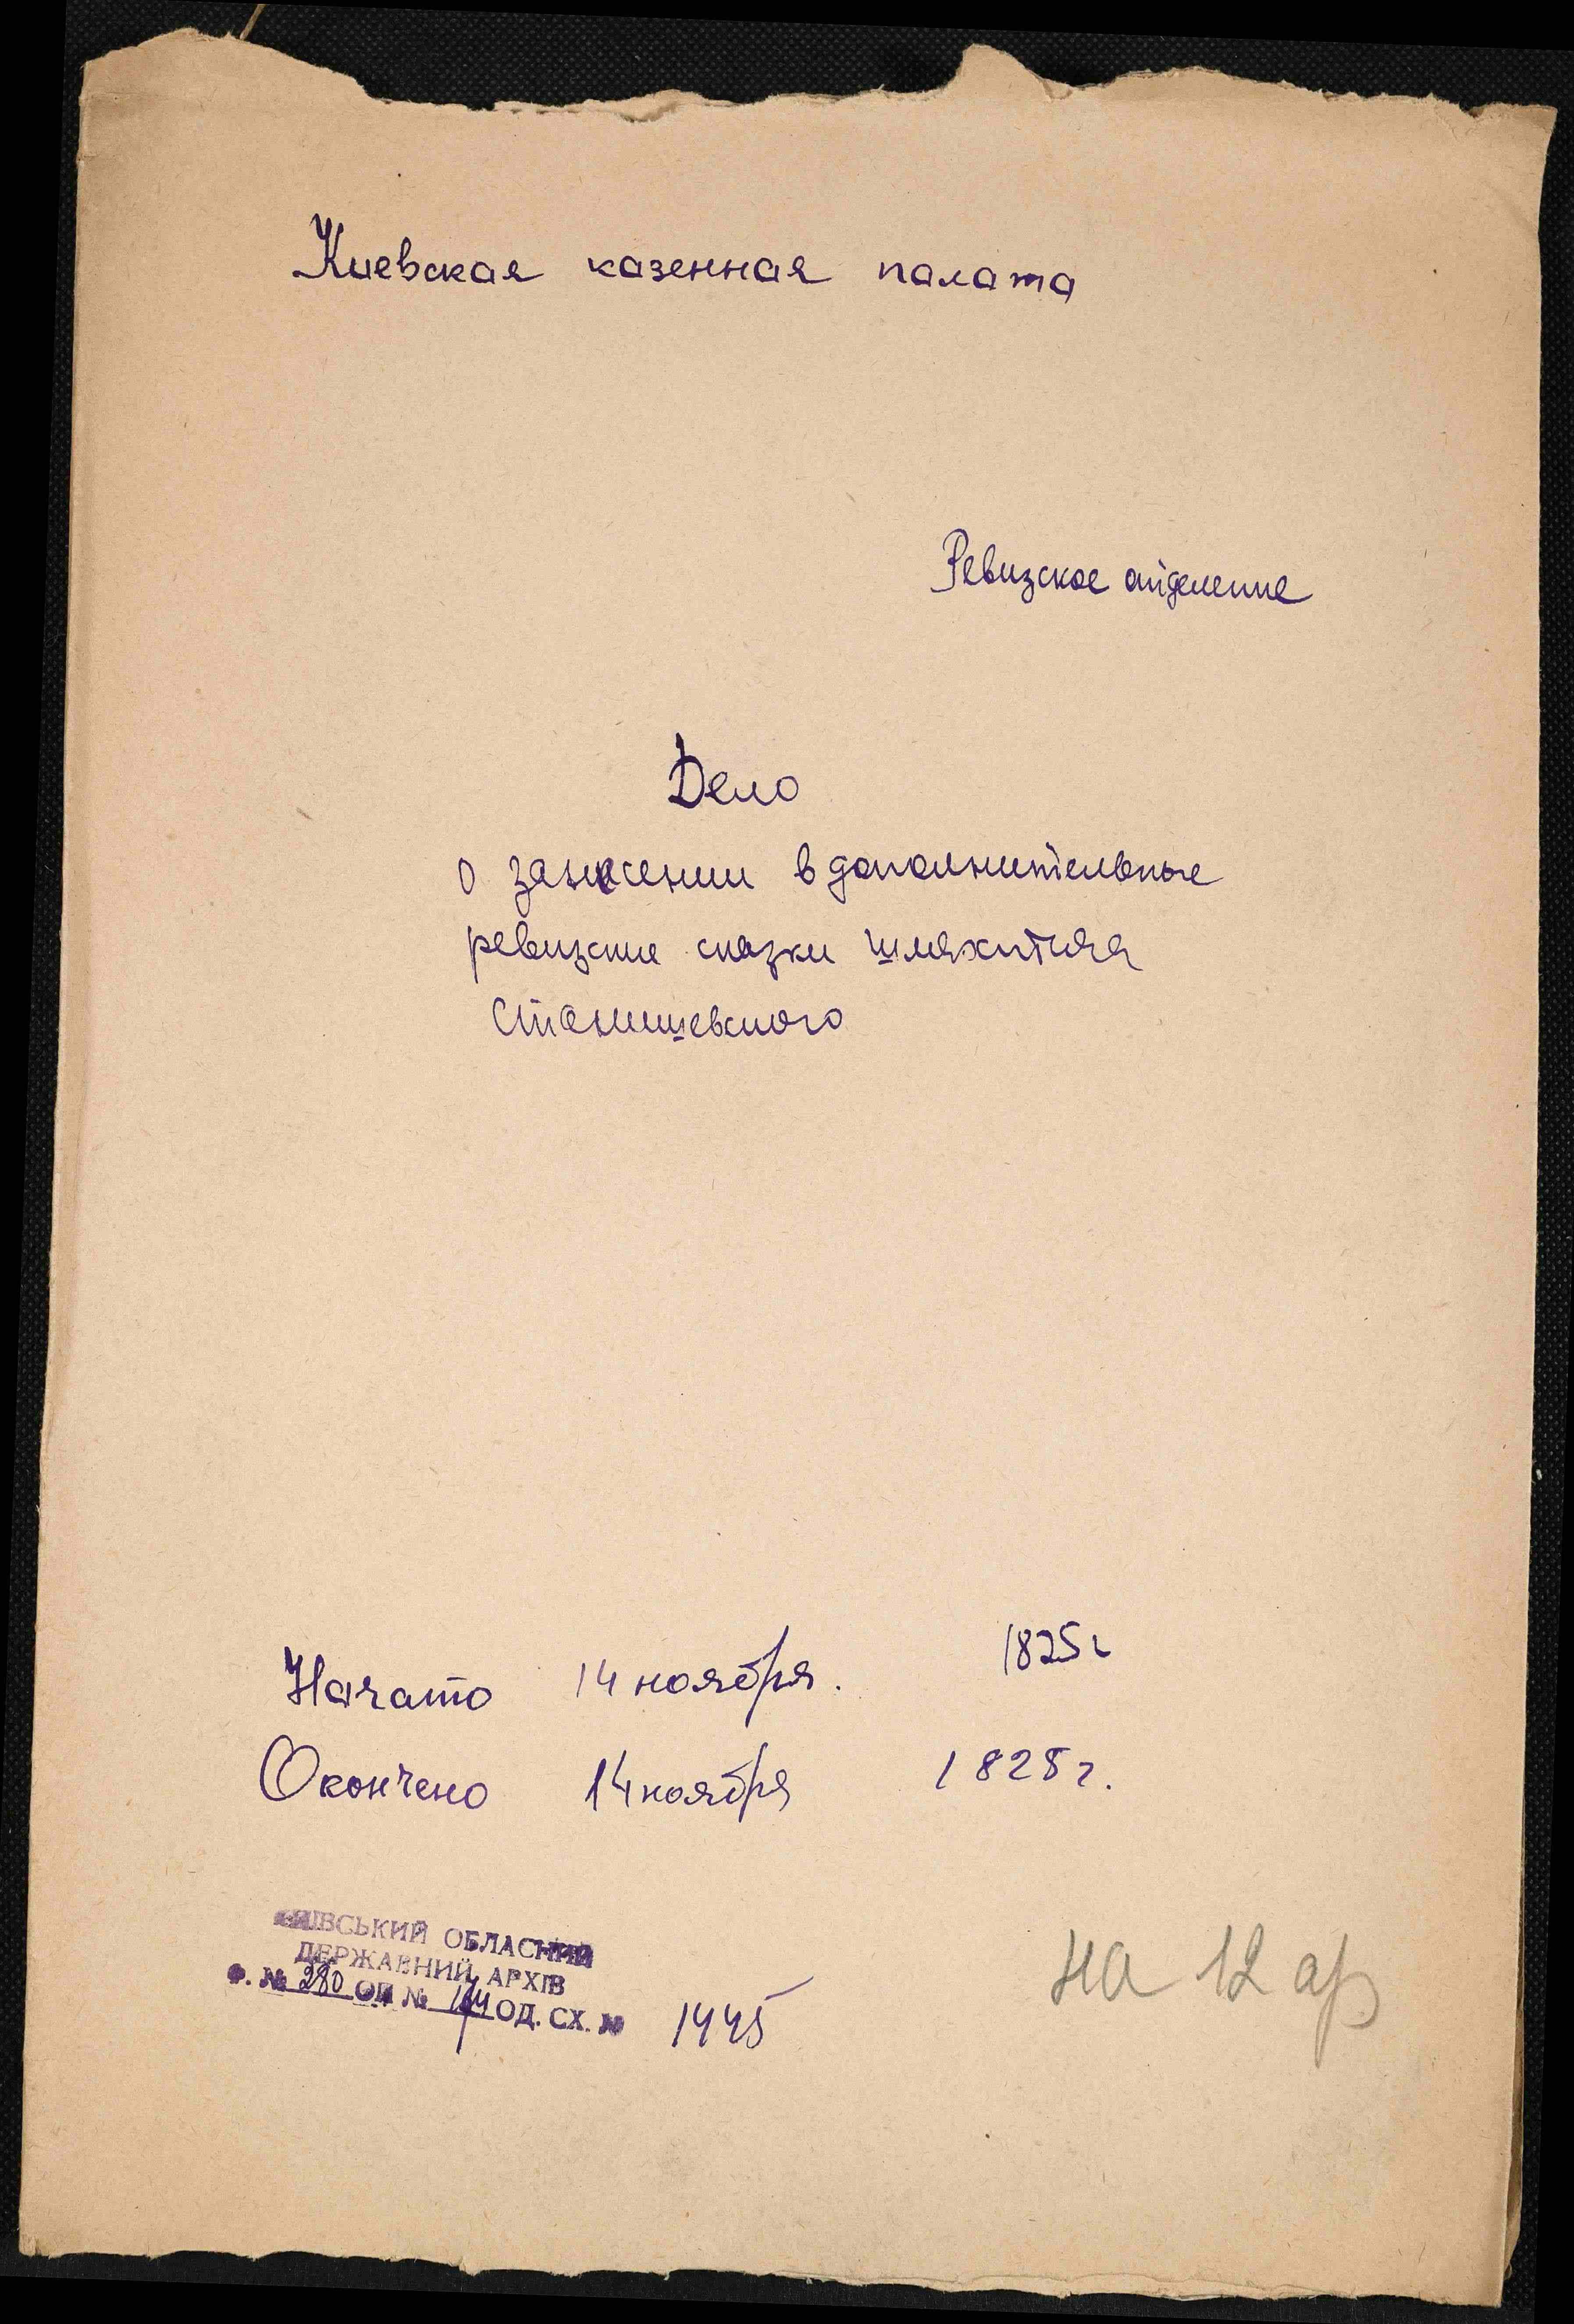 Киевская казенная палата
Ревизское отделение
Дело
о занесении в дополнительные
ревизские сказки шляхтича
Станишевского
Начато 14 ноября. 1825г
Окончено 14 ноября 1828г.
КИЇВСЬКИЙ ОБЛАСНИЙ
ДЕРЖАВНИЙ АРХІВ
Ф. № 280 ОП № 174 ОД. СХ. № 1445
на 12 ар